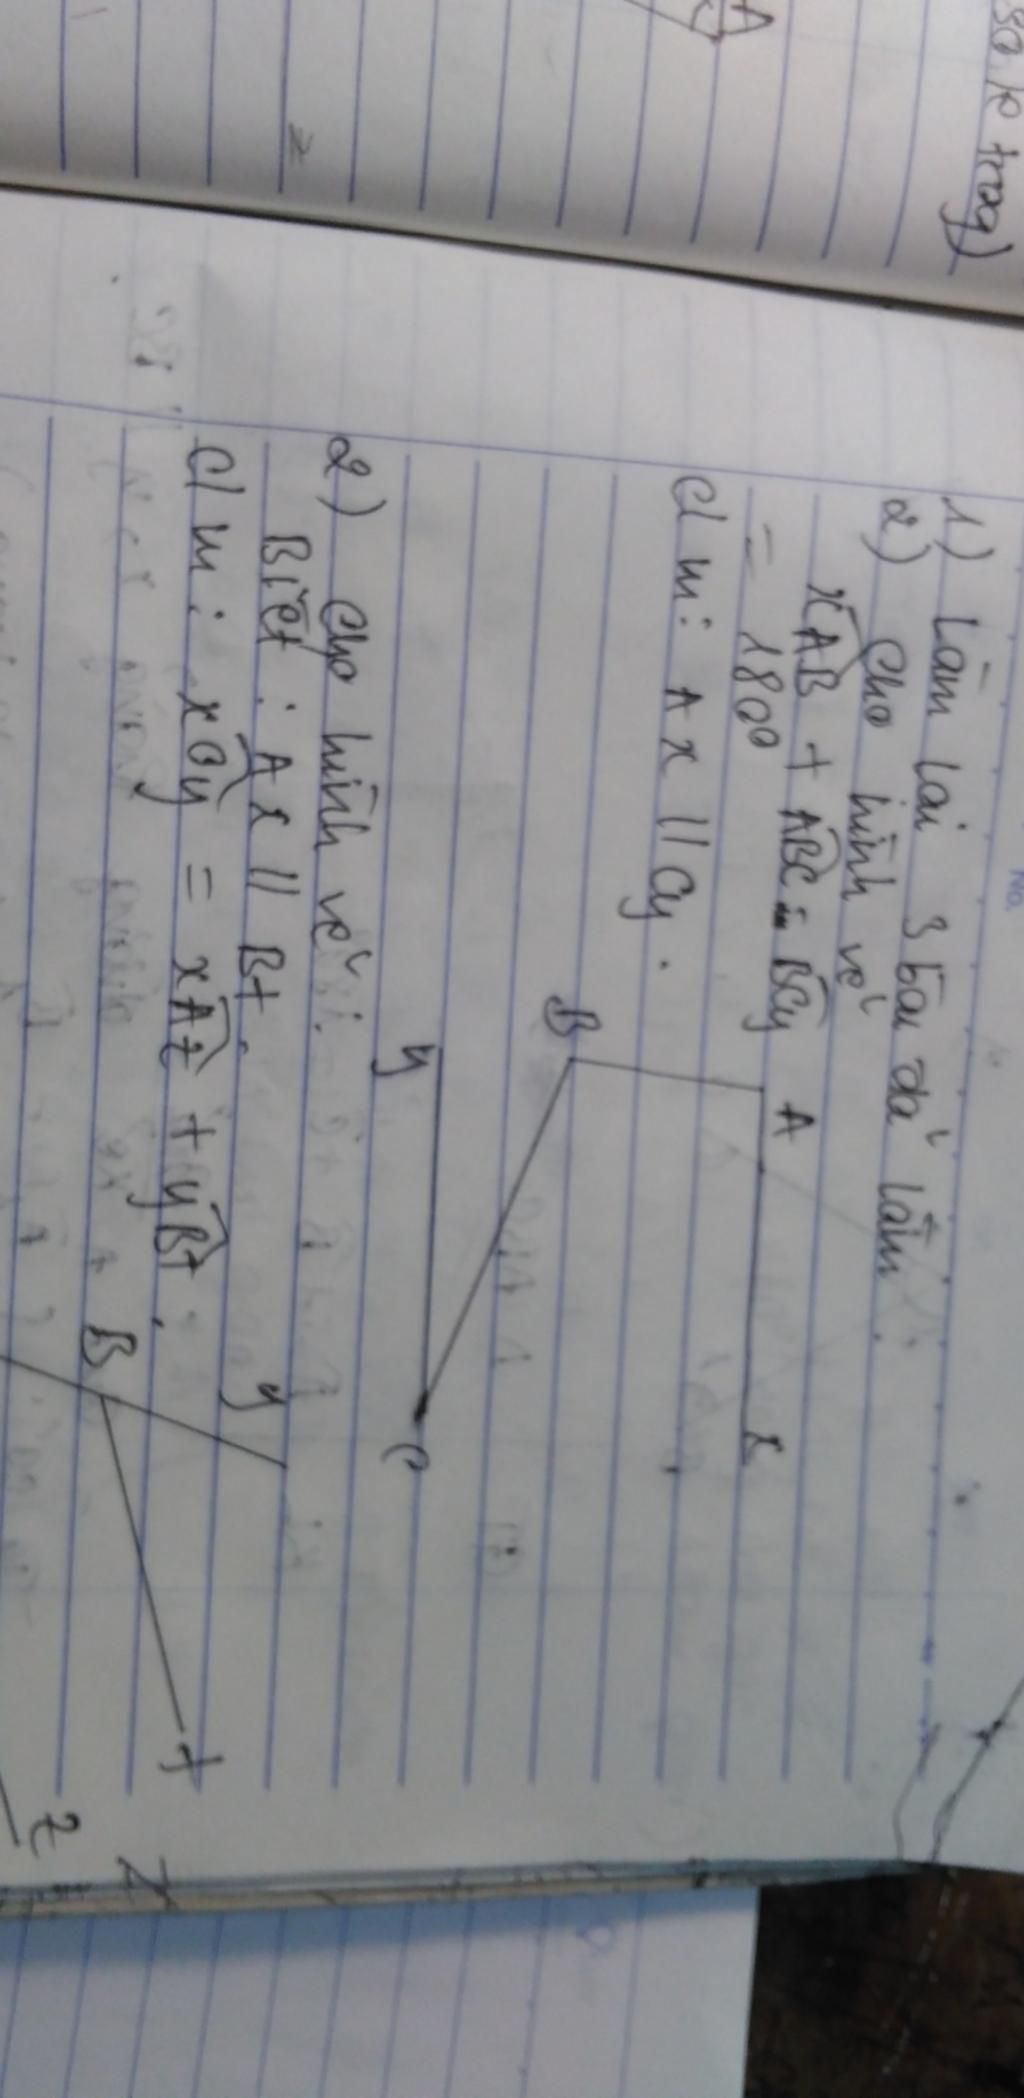 so le trog)
A
1) Làm lại 3 bài đã làm.
2) Cho hình vẽ
xAB + ABC - BCy
= 180
C/m: Ax // Cy.
A
x
B
y
C
2) Cho hình vẽ:
Biết: Ax // Bt.
C/m: xOy = xAz + yBt.
y
B
t
z
No.